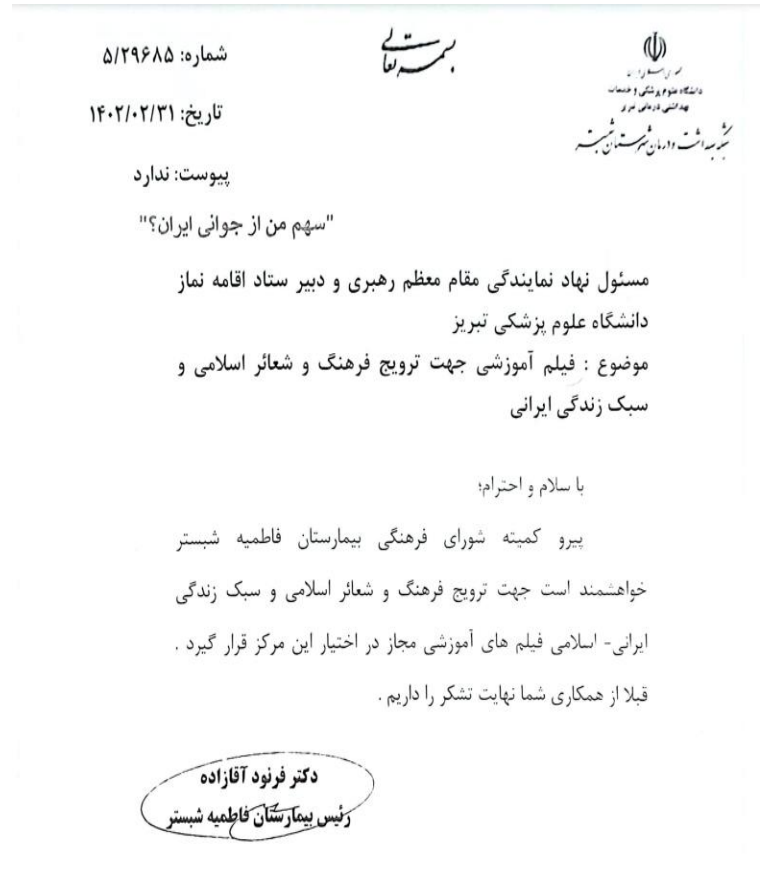 بسمه تعالی
جمهوری اسلامی ایران
دانشگاه علوم پزشکی و خدمات
بهداشتی درمانی تبریز
شبکه بهداشت و درمان شهرستان شبستر
شماره: ۵/۲۹۶۸۵
تاریخ: ۱۴۰۲/۰۲/۳۱
پیوست: ندارد
"سهم من از جوانی ایران؟"
مسئول نهاد نمایندگی مقام معظم رهبری و دبیر ستاد اقامه نماز
دانشگاه علوم پزشکی تبریز
موضوع : فیلم آموزشی جهت ترویج فرهنگ و شعائر اسلامی و
سبک زندگی ایرانی
با سلام و احترام؛
پیرو کمیته شورای فرهنگی بیمارستان فاطمیه شبستر
خواهشمند است جهت ترویج فرهنگ و شعائر اسلامی و سبک زندگی
ایرانی- اسلامی فیلم های آموزشی مجاز در اختیار این مرکز قرار گیرد .
قبلا از همکاری شما نهایت تشکر را داریم .
دکتر فرنود آقازاده
رئیس بیمارستان فاطمیه شبستر